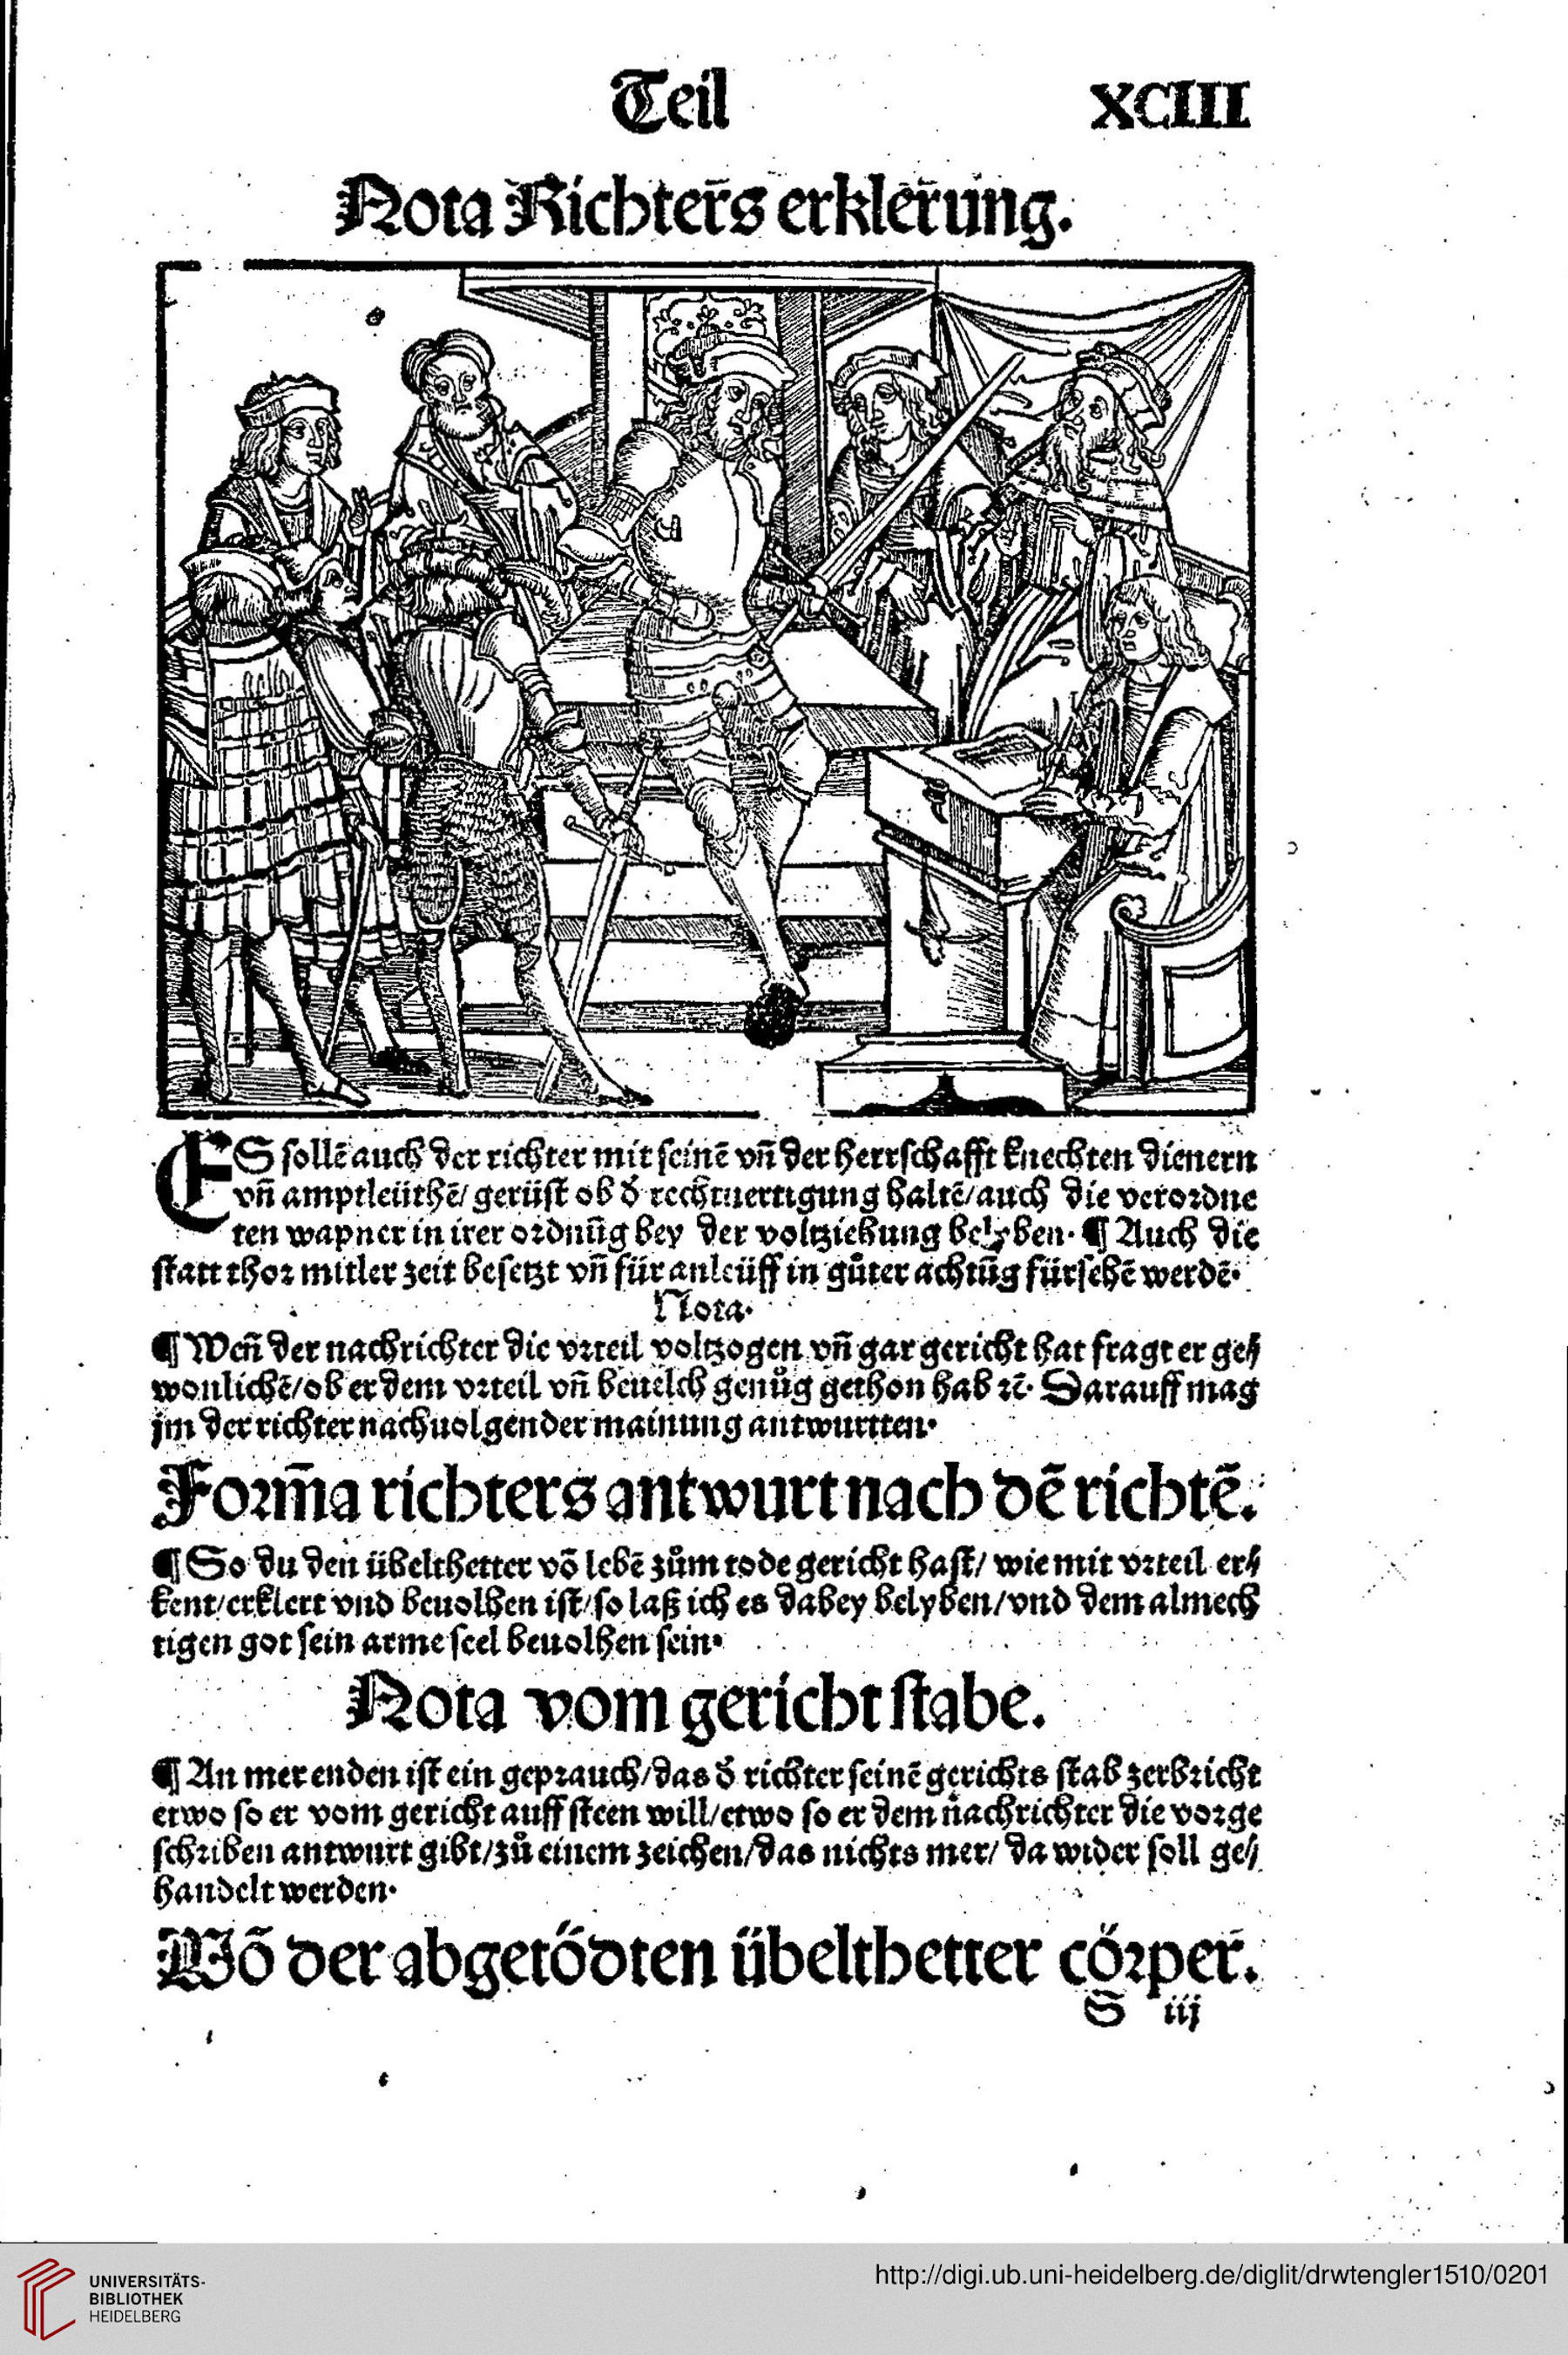 Teil XCIII
Nota Richters erklerung.
ES sollē auch der richter mit seinē vñ der herrschafft knechten dienern
vñ amptleüthē/ gerüst ob d̕ rechtuertigung haltē/ auch die verordne
ten wapner in irer ordnūg bey der voltziehung belyben· ¶ Auch die
statt thor mitler zeit besetzt vñ für anleüff in gůter achtūg fürsehē werdē·
Nota·
¶ Weñ der nachrichter die vrteil voltzogen vñ gar gericht hat fragt er ge⸗
wonlichē/ ob er dem vrteil vñ beuelch genůg gethon hab ꝛc̄· Darauff mag
jm der richter nachuolgender mainung antwurtten·
Form̄a richters antwurt nach dē richtē.
¶ So du den übelthetter vō lebē zům tode gericht hast/ wie mit vrteil er⸗
kent/ erklert vnd beuolhen ist/ so laß ich es dabey belyben/ vnd dem almech
tigen got sein arme seel beuolhen sein·
Nota vom gericht stabe.
¶ An mer enden ist ein geprauch/ das d̕ richter seinē gerichts stab zerbricht
etwo so er vom gericht auff steen will/ etwo so er dem nachrichter die vorge
schriben antwurt gibt/ zů einem zeichen/ das nichts mer/ da wider soll ge⸗
handelt werden·
Võ der abgetödten übelthetter cörper.
S iij
UNIVERSITÄTS-
BIBLIOTHEK
HEIDELBERG
http://digi.ub.uni-heidelberg.de/diglit/drwtengler1510/0201